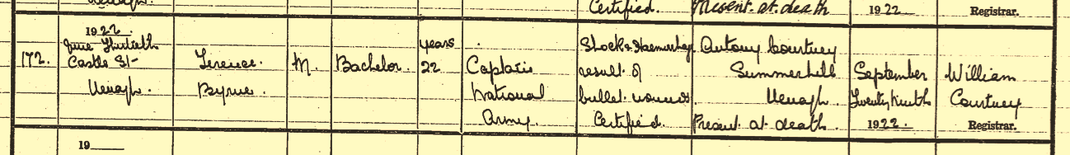 Certified. Present at death 1922 Registrar.
1922.
June Thirtieth years Shock & Haemorrhage Antony Courtney
172. Castle St- Terence M. Bachelor. 22 Captain result of Summerhill September William
Nenagh. Byrne. National bullet wounds Nenagh Twenty Ninth Courtney
Army. Certified. Present at death. 1922. Registrar.
19